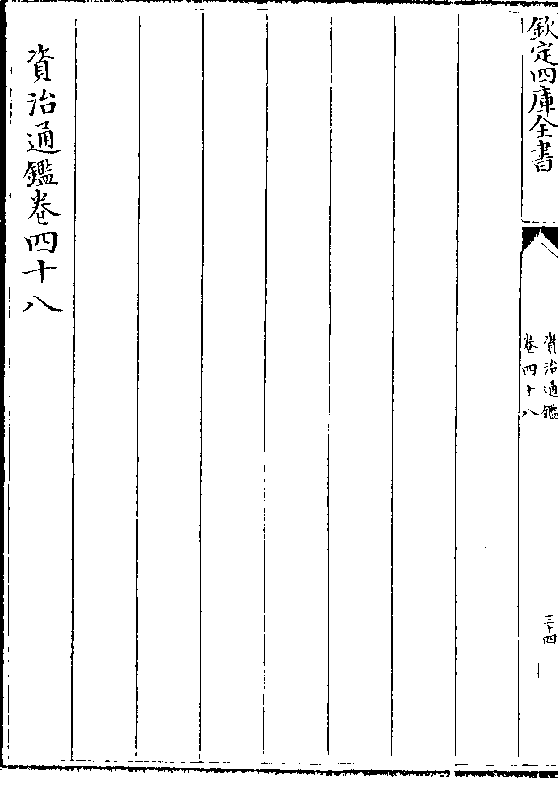 欽定四庫全書
資治通鑑
卷四十八
三十四
資治通鑑卷四十八